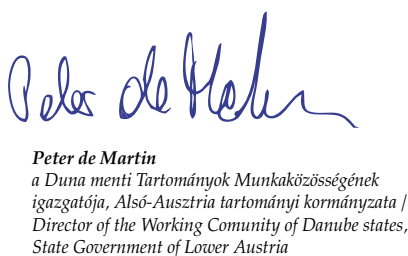 Peter de Martin
Peter de Martin
a Duna menti Tartományok Munkaközösségének
igazgatója, Alsó-Ausztria tartományi kormányzata /
Director of the Working Comunity of Danube states,
State Government of Lower Austria